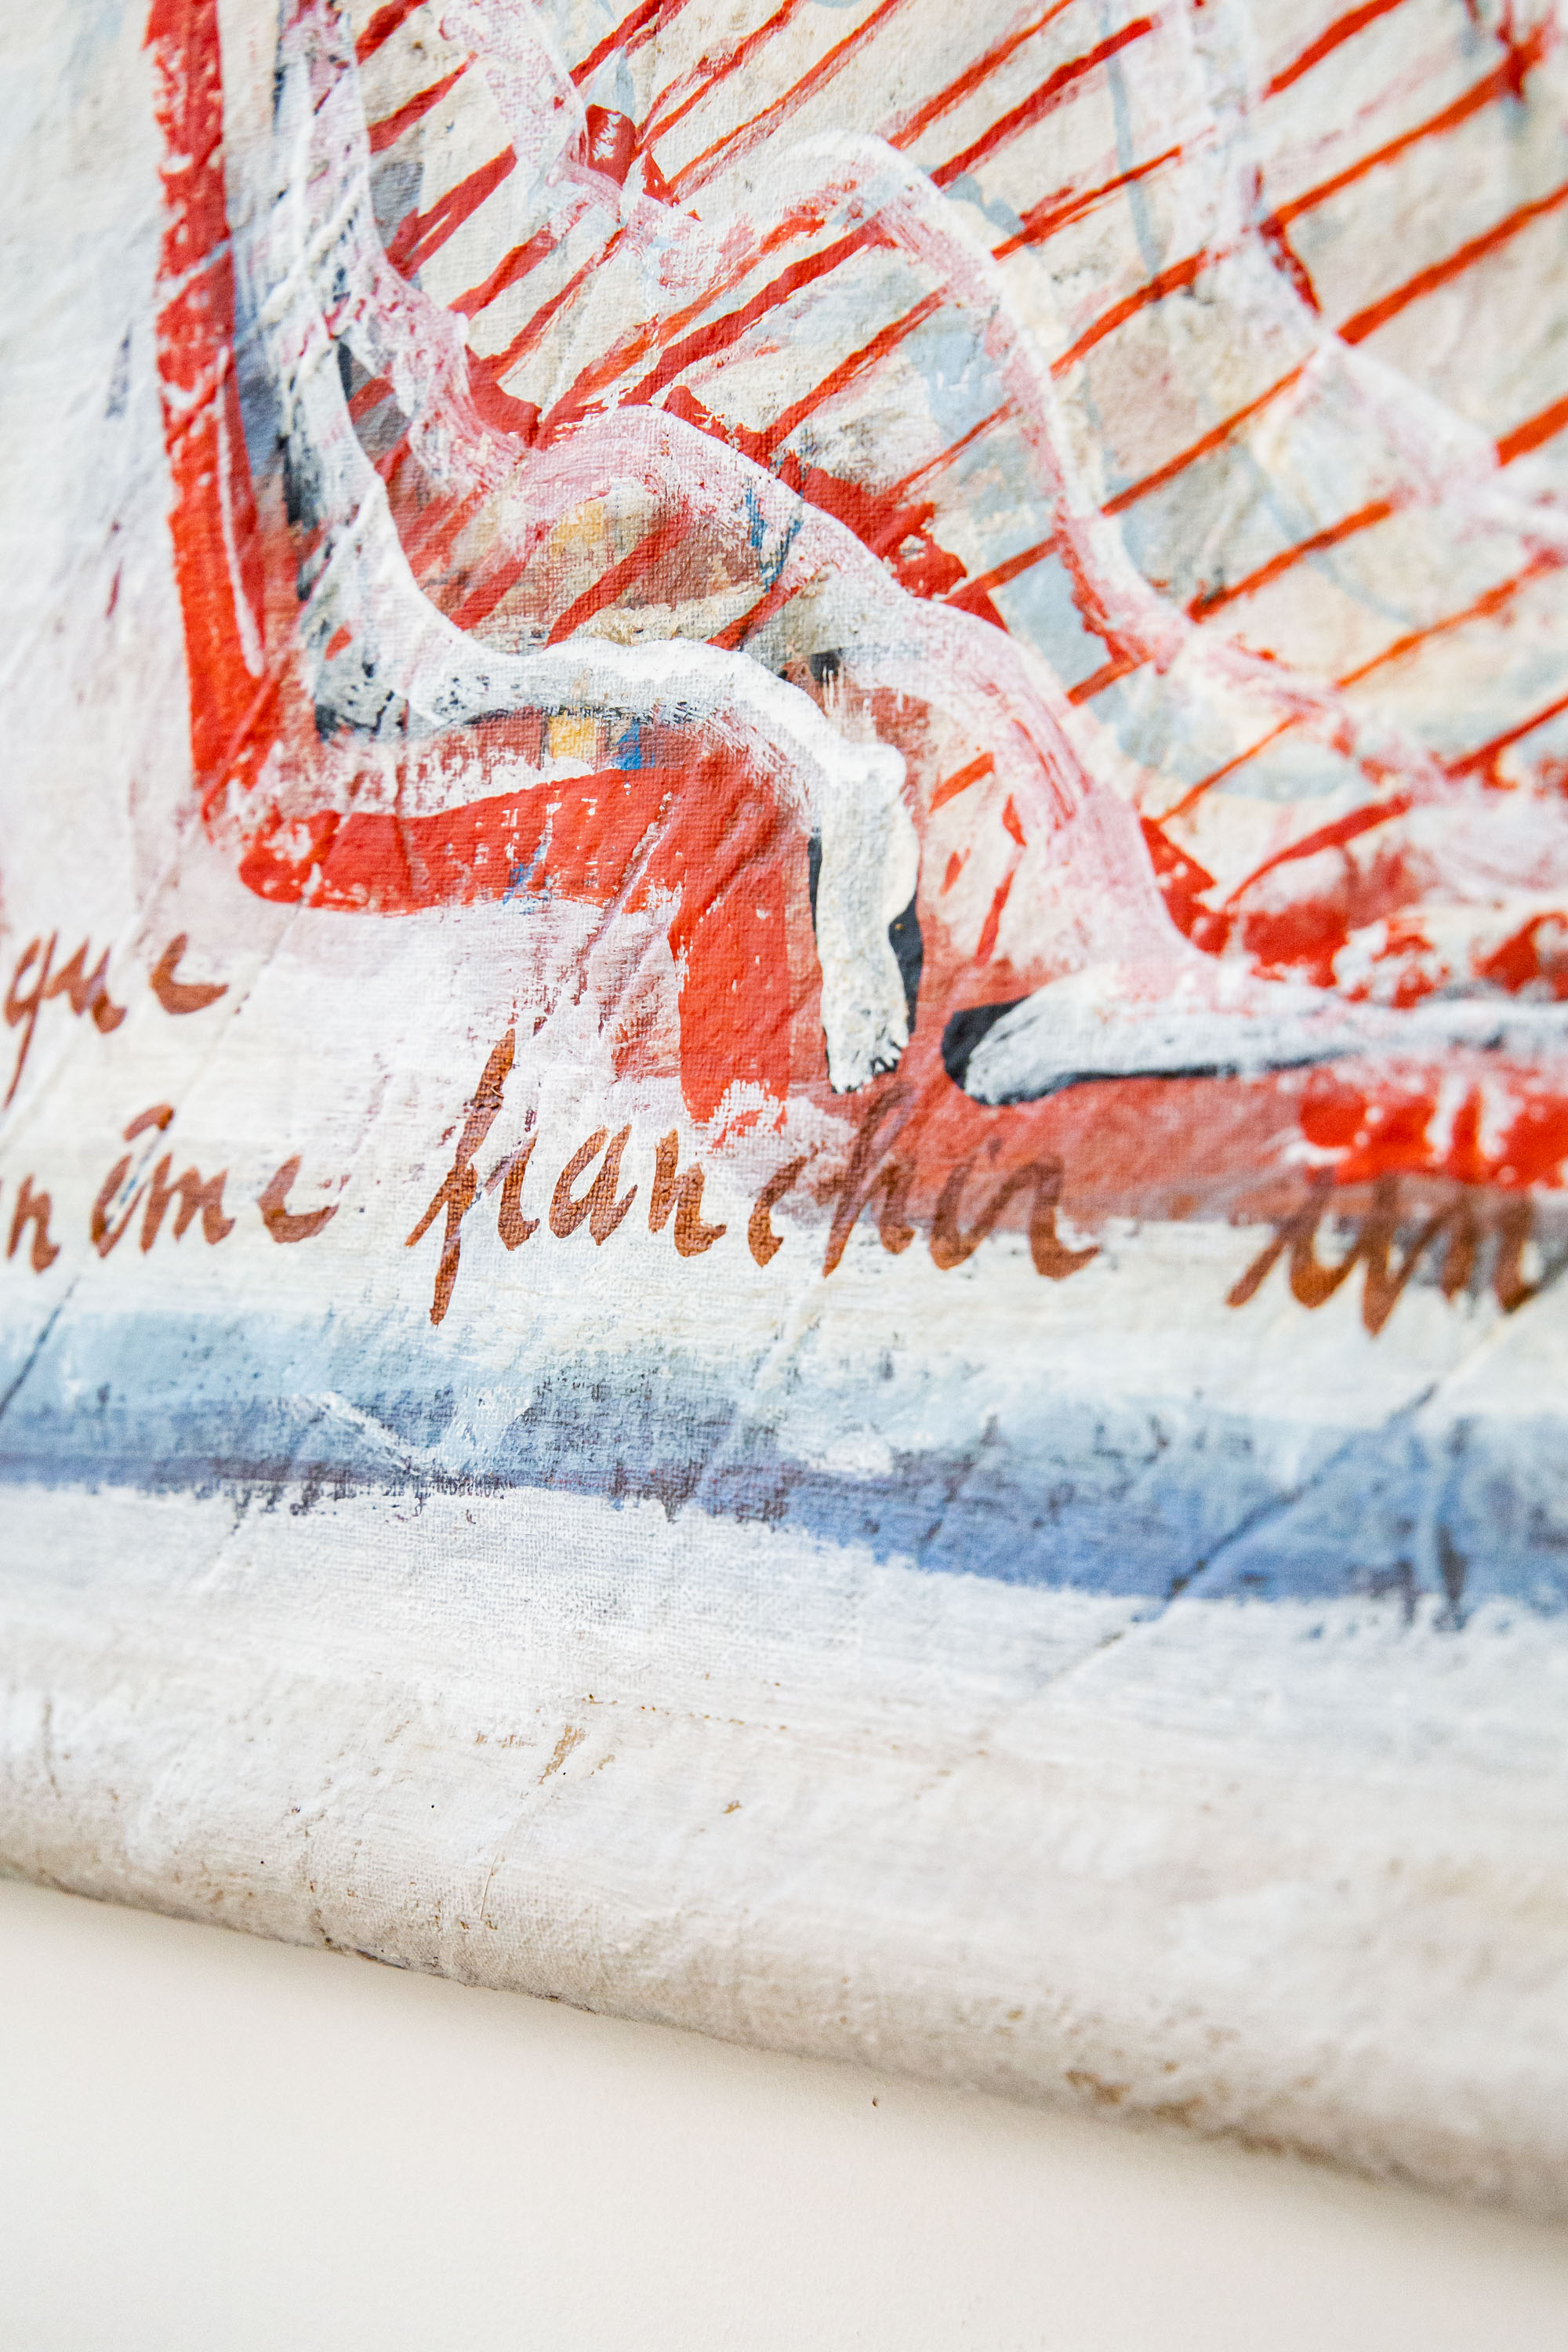 que
même franchir un